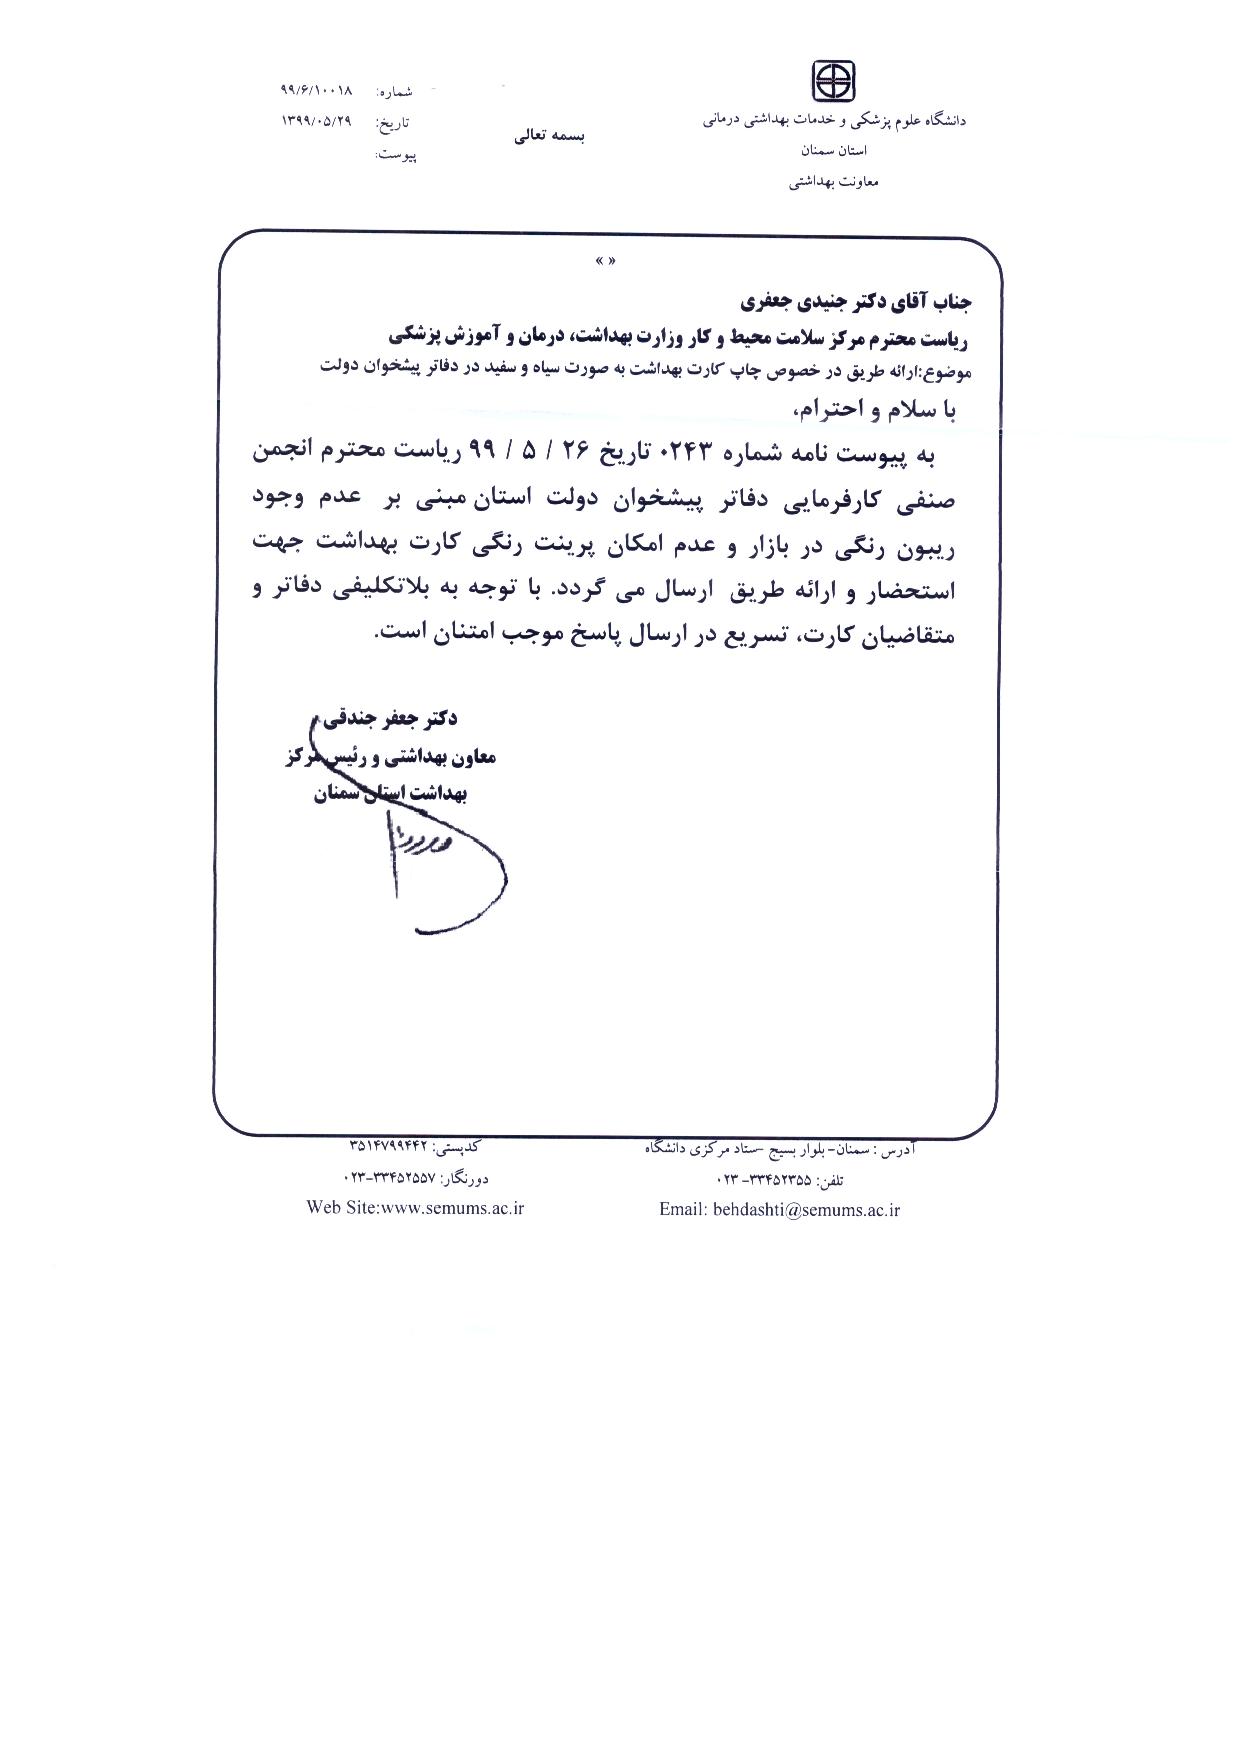 دانشگاه علوم پزشکی و خدمات بهداشتی درمانی
استان سمنان
معاونت بهداشتی
بسمه تعالی
شماره: ۹۹/۶/۱۰۰۱۸
تاریخ: ۱۳۹۹/۰۵/۲۹
پیوست:
« »
جناب آقای دکتر جنیدی جعفری
ریاست محترم مرکز سلامت محیط و کار وزارت بهداشت، درمان و آموزش پزشکی
موضوع:ارائه طریق در خصوص چاپ کارت بهداشت به صورت سیاه و سفید در دفاتر پیشخوان دولت
با سلام و احترام،
به پیوست نامه شماره ۰۲۴۳ تاریخ ۲۶ / ۵ / ۹۹ ریاست محترم انجمن
صنفی کارفرمایی دفاتر پیشخوان دولت استان مبنی بر عدم وجود
ریبون رنگی در بازار و عدم امکان پرینت رنگی کارت بهداشت جهت
استحضار و ارائه طریق ارسال می گردد. با توجه به بلاتکلیفی دفاتر و
متقاضیان کارت، تسریع در ارسال پاسخ موجب امتنان است.
دکتر جعفر جندقی
معاون بهداشتی و رئیس مرکز
بهداشت استان سمنان
آدرس : سمنان- بلوار بسیج -ستاد مرکزی دانشگاه
تلفن: ۳۳۴۵۲۳۵۵- ۰۲۳
Email: behdashti@semums.ac.ir
کدپستی: ۳۵۱۴۷۹۹۴۴۲
دورنگار: ۳۳۴۵۲۵۵۷-۰۲۳
Web Site:www.semums.ac.ir